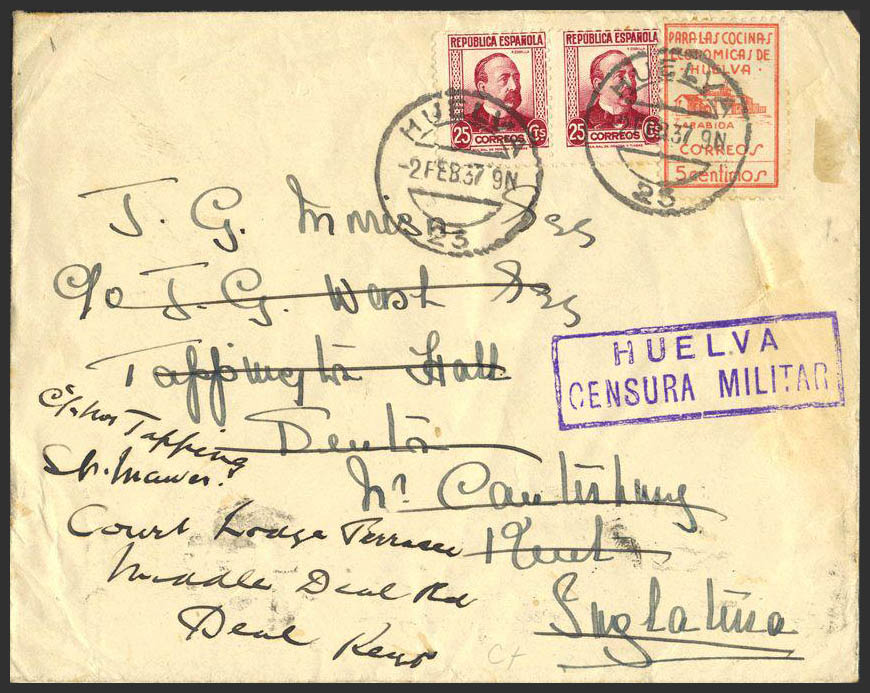 REPÚBLICA ESPAÑOLA
25 CORREOS CTS
REPÚBLICA ESPAÑOLA
25 CORREOS CTS
PARA LAS COCINAS
ECONOMICAS DE
HUELVA
RABIDA
CORREOS
5 centimos
HUELVA
-2FEB37 9N
23
HUELVA
-2FEB37 9N
23
J. G. Morrison Esq
c/o J. G. West Esq
Tappington Hall
Denton
Nr Canterbury
Kent
Inglaterra
HUELVA
CENSURA MILITAR
Tapping
Court Lodge Terrace
Middle Deal Rd
Deal Kent